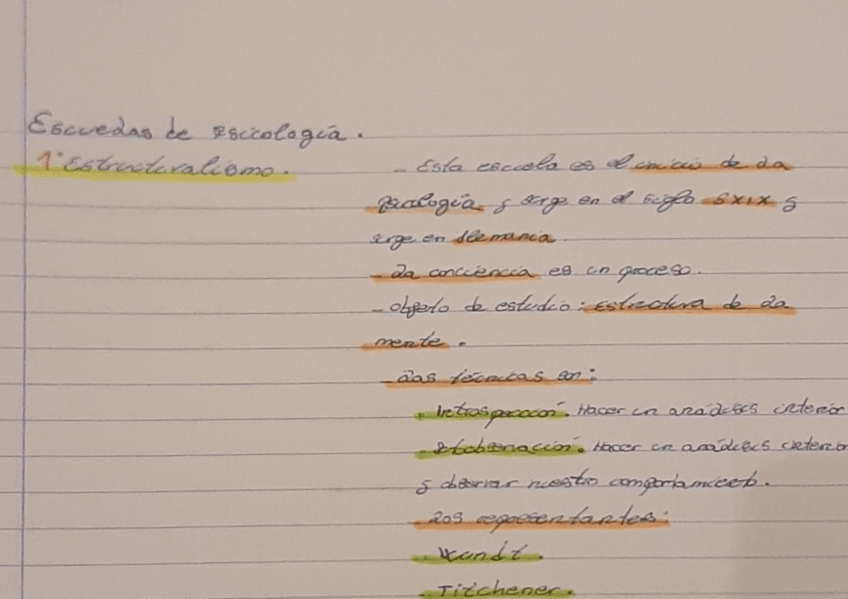 Escuelas de Psicología.
1º Estructuralismo.
- Esta escuela es el inicio de la
psicología y surge en el siglo SXIX y
surge en Alemania.
- La conciencia es un proceso.
- objeto de estudio: estructura de la
mente.
- Las técnicas son:
. Introspección. Hacer un análisis interior
. Autobservación. Hacer un análisis interior
y observar nuestro comportamiento.
- Los representantes:
- Wundt.
- Titchener.